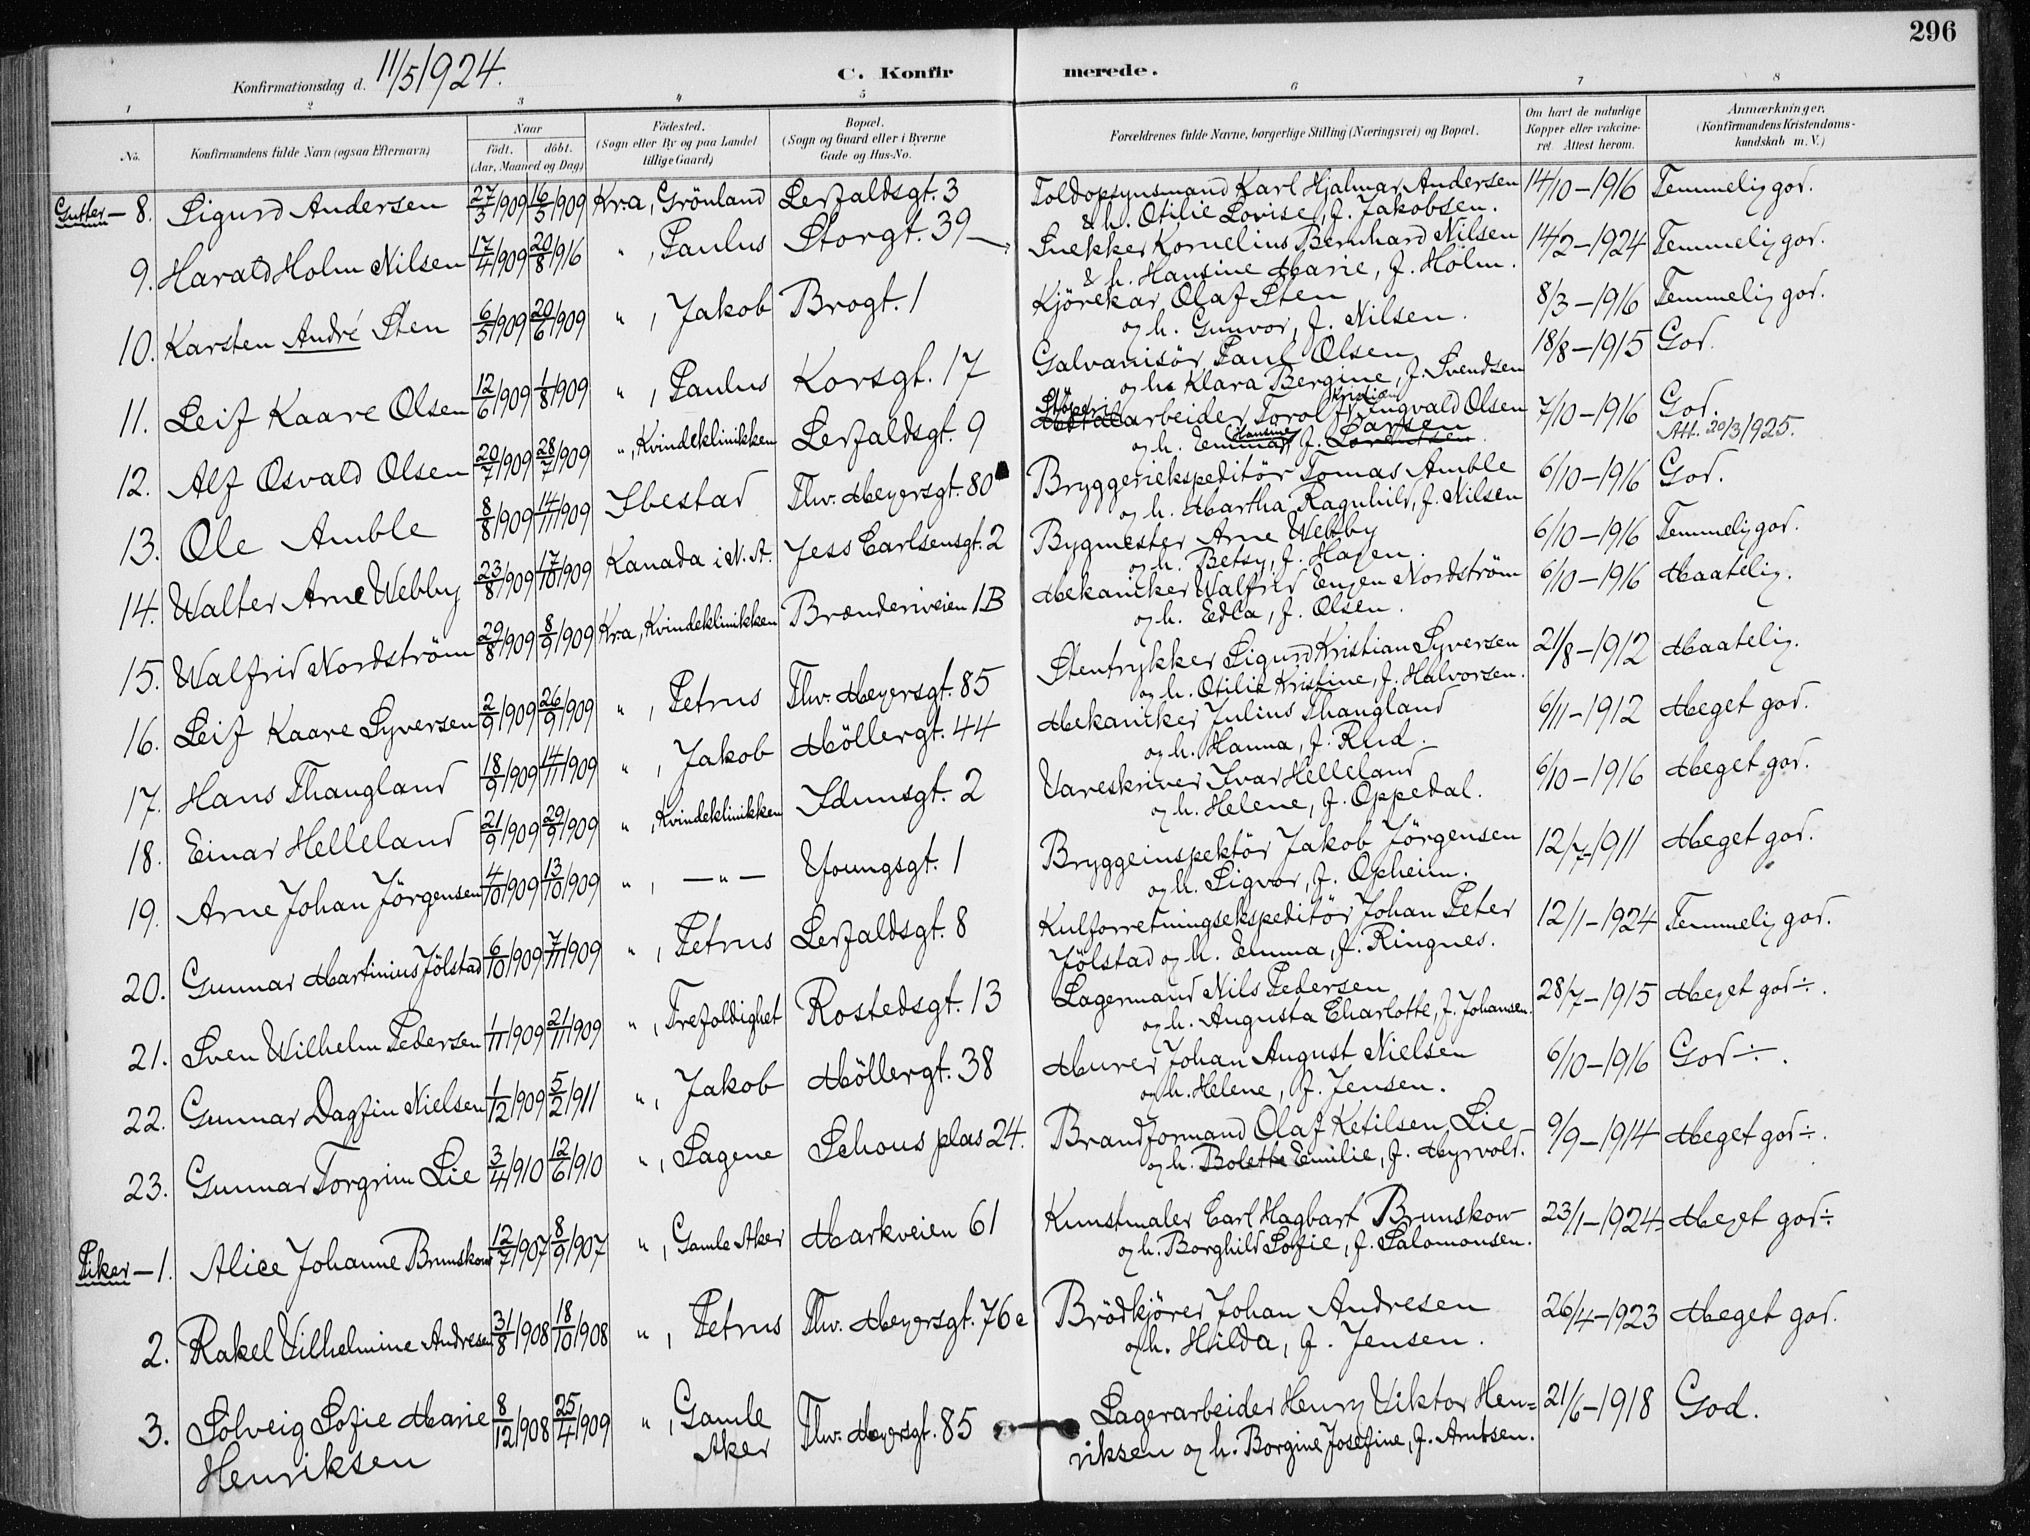 296
Konfirmationsdag d. 11/5 1924.
C. Konfirmerede.
1 2 3 4 5 6 7 8
No. Konfirmandens fulde Navn (ogsaa Efternavn) Naar födt. döbt. (Aar, Maaned og Dag) Födested. (Sogn eller By og paa Landet tillige Gaard) Bopæl. (Sogn og Gaard eller i Byerne Gade og Hus-No. Forældrenes fulde Navne, borgerlige Stilling (Næringsvei) og Bopæl. Om havt de naturlige Kopper eller vakcineret. Attest herom. Anmærkninger. (Konfirmandens Kristendomskundskab m. V.)
Gutter – 8. Sigurd Andersen 27/3 1909 16/5 1909 Kr.a, Grönland Lerfaldsgt. 3 Toldopsynsmand Karl Hjalmar Andersen 14/10 – 1916 Temmelig god.
& h. Otilie Lovise, f. Jakobsen.
9. Harald Holm Nilsen 17/4 1909 20/8 1916 " , Paulus Storgt. 39 Snekker Kornelius Bernhard Nilsen 14/2 – 1924 Temmelig god.
& h. Hansine Marie, f. Holm.
10. Karsten André Sten 6/5 1909 20/6 1909 " , Jakob Brogt. 1 Kjörekar Olaf Sten 8/3 – 1916 Temmelig god.
og h. Gunvor, f. Nilsen.
11. Leif Kaare Olsen 12/6 1909 1/8 1909 " , Paulus Korsgt. 17 Galvanisör Paul Olsen 18/8 – 1915 God.
og h. Klara Bergine, f. Svendsen
12. Alf Osvald Olsen 20/7 1909 28/7 1909 " , Kvindeklinikken Lerfaldsgt. 9 Støperiarbeider Torolf Kristian Ingvald Olsen 7/10 – 1916 God.
og h. Emma Hansine, f. Larsen Lorentsen. Att. 20/3 1925.
13. Ole Amble 8/8 1909 14/11 1909 Ibestad Thv. Meyersgt. 80 Bryggeriekspeditör Tomas Amble 6/10 – 1916 God.
og h. Martha Ragnhild, f. Nilsen
14. Walter Arne Webby 23/8 1909 17/10 1909 Kanada i N. A. Jess Carlsensgt. 2 Bygmester Arne Webby 6/10 – 1916 Temmelig god.
og h. Betsy, f. Hagen.
15. Walfrid Nordström 29/8 1909 8/9 1909 Kr.a, Kvindeklinikken Brænderiveien 1B Mekaniker Walfrid Eugen Nordström 6/10 – 1916 Maatelig.
og h. Edla, f. Olsen.
16. Leif Kaare Syversen 2/9 1909 26/9 1909 " , Petrus Thv. Meyersgt. 85 Stentrykker Sigurd Kristian Syversen 21/8 – 1912 Maatelig.
og h. Otilie Kristine, f. Halvorsen.
17. Hans Thangland 18/9 1909 14/11 1909 " , Jakob Möllergt. 44 Mekaniker Julius Thangland 6/11 – 1912 Meget god.
og h. Hanna, f. Rud.
18. Einar Helleland 21/9 1909 29/9 1909 " , Kvindeklinikken Idunsgt. 2 Vareskriver Ivar Helleland 6/10 – 1916 Meget god.
og h. Helene, f. Oppedal.
19. Arne Johan Jörgensen 4/10 1909 13/10 1909 " , — " — Youngsgt. 1 Bryggeinspektör Jakob Jörgensen 12/7 – 1911 Meget god.
og h. Sigvor, f. Opheim.
20. Gunnar Martinius Jölstad 6/10 1909 7/11 1909 " , Petrus Lerfaldsgt. 8 Kulforretningsekspeditör Johan Peter 12/1 – 1924 Temmelig god.
Jölstad og h. Emma, f. Ringnes.
21. Sven Wilhelm Pedersen 1/11 1909 21/11 1909 " , Trefoldighet Rostedsgt. 13 Lagermand Nils Pedersen 28/7 – 1915 Meget god ÷.
og h. Augusta Charlotte, f. Johansen.
22. Gunnar Dagfin Nielsen 1/12 1909 5/2 1911 " , Jakob Möllergt. 38 Murer Johan August Nielsen 6/10 – 1916 God ÷.
og h. Helene, f. Jensen.
23. Gunnar Torgrim Lie 3/4 1910 12/6 1910 " , Sagene Schous plas 24. Brandformand Olaf Ketilsen Lie 9/9 – 1914 Meget god ÷.
og h. Bolette Emilie, f. Myrvold.
Piker – 1. Alice Johanne Brunskow 12/7 1907 8/9 1907 " , Gamle Aker Markveien 61 Kunstmaler Carl Hagbart Brunskow 23/1 – 1924 Meget god ÷
og h. Borghild Sofie, f. Salomonsen.
2. Rakel Vilhelmine Andresen 31/8 1908 18/10 1908 " , Petrus Thv. Meyersgt. 76 c Brödkjörer Johan Andresen 26/4 – 1923 Meget god.
og h. Hilda, f. Jensen.
3. Solveig Sofie Marie 8/12 1908 25/4 1909 " , Gamle Aker Thv. Meyersgt. 85 Lagerarbeider Henry Viktor Hen= 21/6 – 1918 God.
Henriksen riksen og h. Borgine Josefine, f. Arntsen.